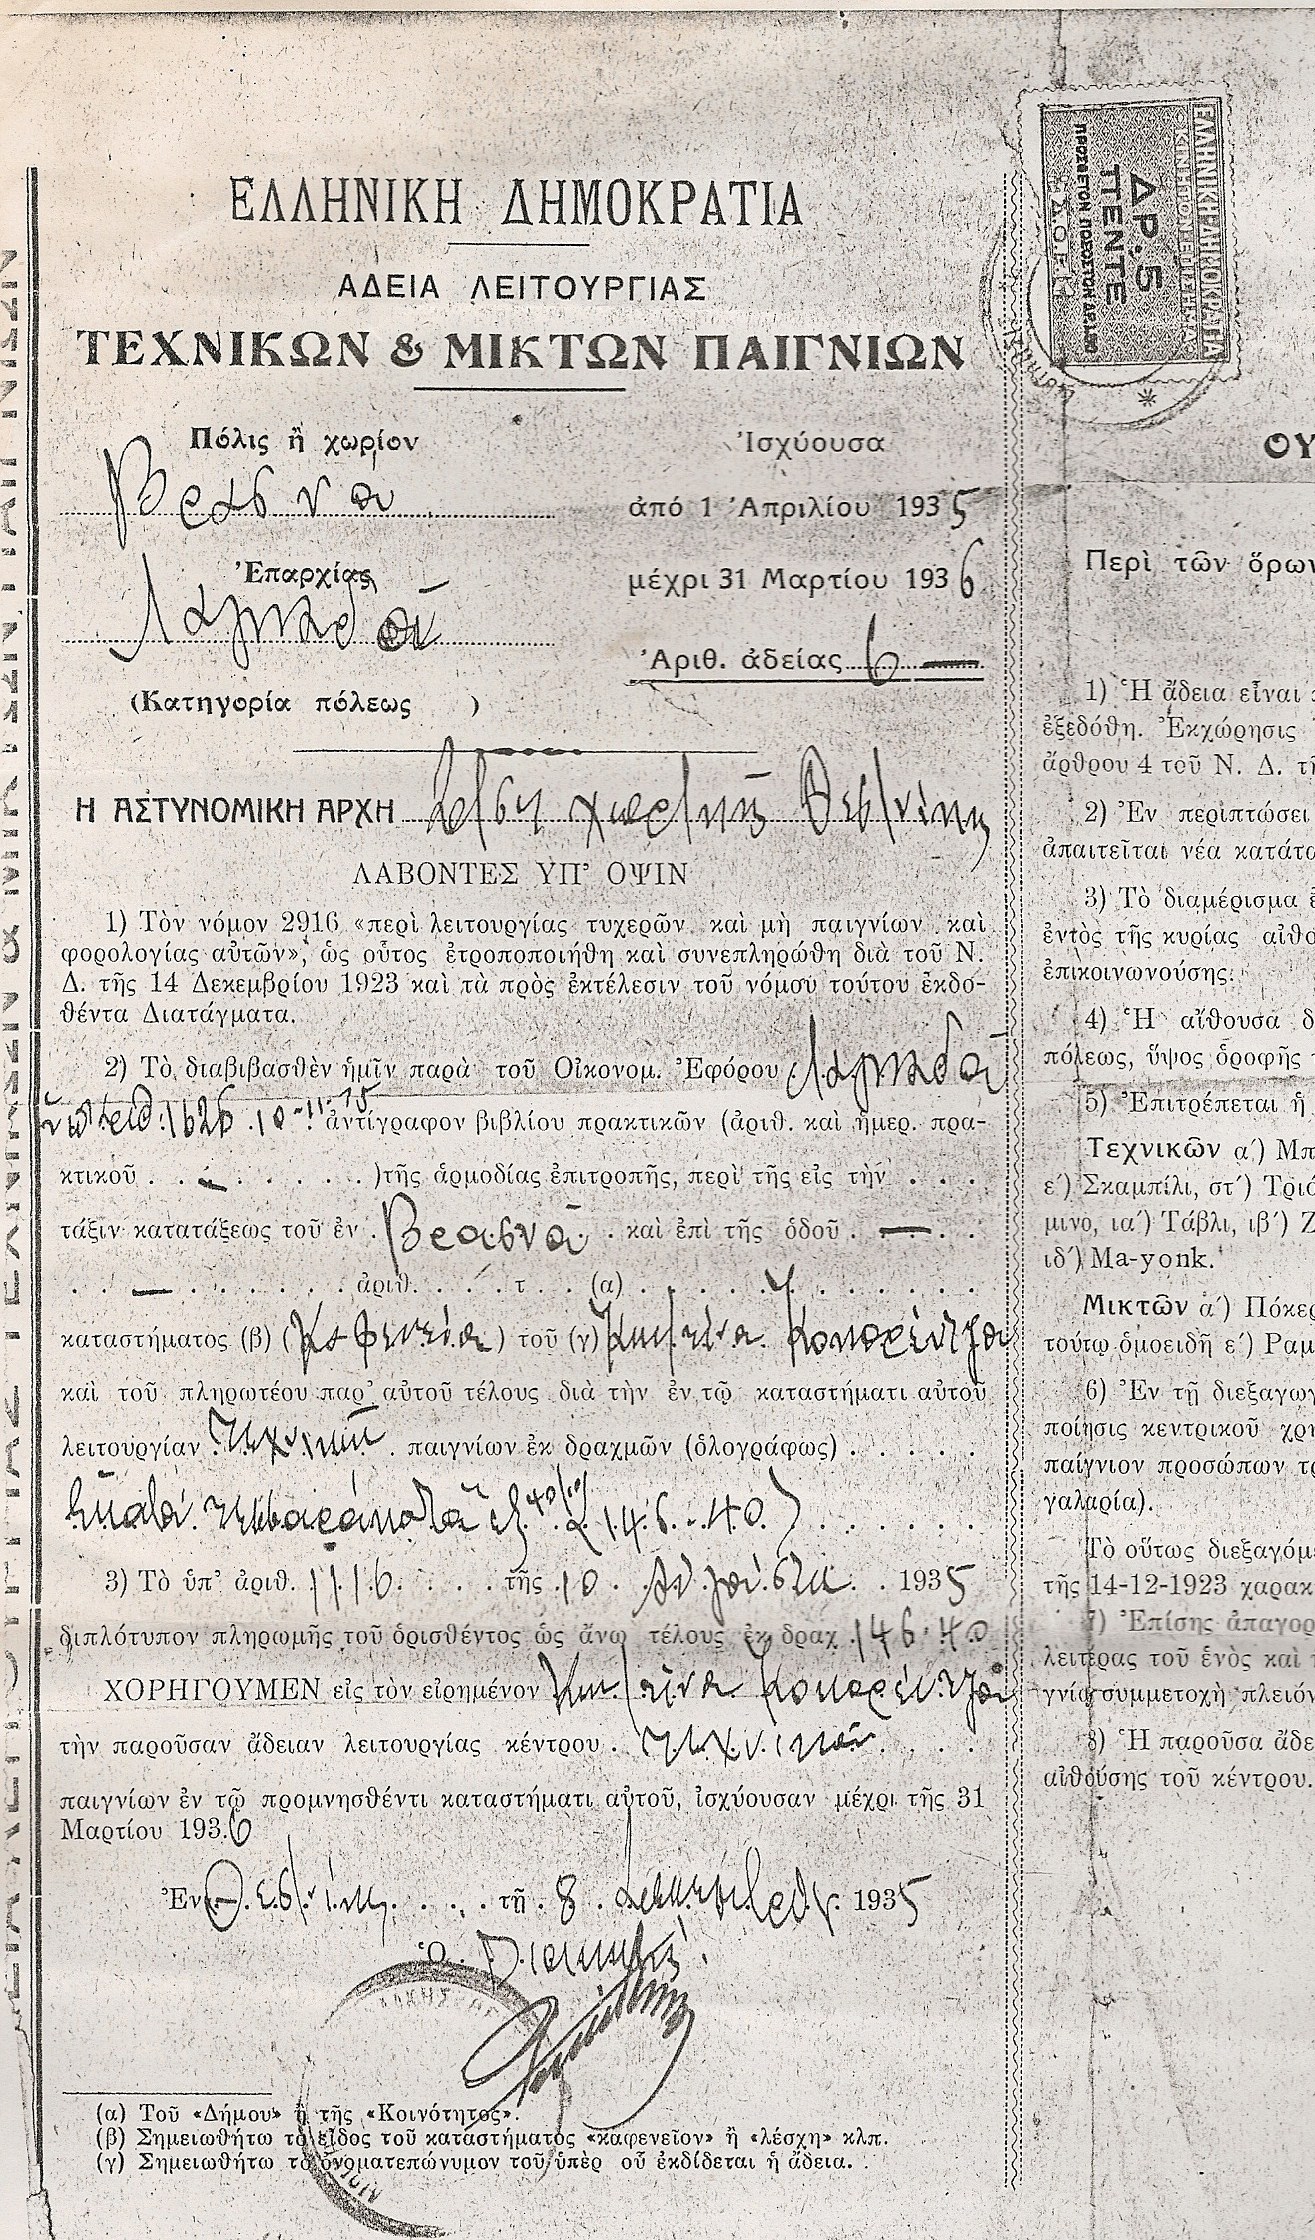 ΕΛΛΗΝΙΚΗ ΔΗΜΟΚΡΑΤΙΑ
ΑΔΕΙΑ ΛΕΙΤΟΥΡΓΙΑΣ
ΤΕΧΝΙΚΩΝ & ΜΙΚΤΩΝ ΠΑΙΓΝΙΩΝ
Πόλις ἢ χωρίον
Βρασνῶν
Ἐπαρχίας
Λαγκαδᾶ
(Κατηγορία πόλεως )
Ἰσχύουσα
ἀπό 1 Ἀπριλίου 1935
μέχρι 31 Μαρτίου 1936
Ἀριθ. ἀδείας 6 —
Η ΑΣΤΥΝΟΜΙΚΗ ΑΡΧΗ
ΛΑΒΟΝΤΕΣ ΥΠ' ΟΨΙΝ
1) Τὸν νόμον 2916 «περὶ λειτουργίας τυχερῶν καὶ μὴ παιγνίων καὶ
φορολογίας αὐτῶν», ὡς οὗτος ἐτροποποιήθη καὶ συνεπληρώθη διὰ τοῦ Ν.
Δ. τῆς 14 Δεκεμβρίου 1923 καὶ τὰ πρὸς ἐκτέλεσιν τοῦ νόμου τούτου ἐκδο-
θέντα Διατάγματα.
2) Τὸ διαβιβασθὲν ἡμῖν παρὰ τοῦ Οἰκονομ. Ἐφόρου Λαγκαδᾶ
ἀριθ. 1626 10-11-35 ἀντίγραφον βιβλίου πρακτικῶν (ἀριθ. καὶ ἡμερ. πρα-
κτικοῦ . . — . . . . . )τῆς ἁρμοδίας ἐπιτροπῆς, περὶ τῆς εἰς τὴν . . .
τάξιν κατατάξεως τοῦ ἐν Βρασνᾶ καὶ ἐπὶ τῆς ὁδοῦ . — . .
. . — . . . . . . . ἀριθ. . . . τ . . (α)
καταστήματος (β) (Καφενεῖον) τοῦ (γ)
καὶ τοῦ πληρωτέου παρ' αὐτοῦ τέλους διὰ τὴν ἐν τῷ καταστήματι αὐτοῦ
λειτουργίαν τεχνικῶν παιγνίων ἐκ δραχμῶν (ὁλογράφως) . . . . .
Ἑκατὸν τεσσαράκοντα ἓξ 40/00 (146-40)
3) Τὸ ὑπ' ἀριθ. 1116 . . . . τῆς 10 Αὐγούστου 1935
διπλότυπον πληρωμῆς τοῦ ὁρισθέντος ὡς ἄνω τέλους ἐκ δραχ. 146.40
ΧΟΡΗΓΟΥΜΕΝ εἰς τὸν εἰρημένον
τὴν παροῦσαν ἄδειαν λειτουργίας κέντρου τεχνικῶν
παιγνίων ἐν τῷ προμνησθέντι καταστήματι αὐτοῦ, ἰσχύουσαν μέχρι τῆς 31
Μαρτίου 1936
Ἐν Θεσ/νίκῃ . . . . τῇ 8 1935
Ὁ Διοικητής
(α) Τοῦ «Δήμου» ἢ τῆς «Κοινότητος».
(β) Σημειωθήτω τὸ εἶδος τοῦ καταστήματος «καφενεῖον» ἢ «λέσχη» κλπ.
(γ) Σημειωθήτω τὸ ὀνοματεπώνυμον τοῦ ὑπὲρ οὗ ἐκδίδεται ἡ ἄδεια.
ΕΛΛΗΝΙΚΗ ΔΗΜΟΚΡΑΤΙΑ
ΚΙΝΗΤΟΝ ΕΠΙΣΗΜΑ
ΔΡ. 5
ΠΕΝΤΕ
ΠΡΟΣΘΕΤΟΝ ΠΟΣΟΣΤΟΝ
ΟΥ
Περὶ τῶν ὅρων
1) Ἡ ἄδεια εἶναι
ἐξεδόθη. Ἐκχώρησις
ἄρθρου 4 τοῦ Ν. Δ. τῆ
2) Ἐν περιπτώσει
ἀπαιτεῖται νέα κατάτα
3) Τὸ διαμέρισμα
ἐντὸς τῆς κυρίας αἰθο
ἐπικοινωνούσης.
4) Ἡ αἴθουσα δ
πόλεως, ὕψος ὀροφῆς
5) Ἐπιτρέπεται ἡ
Τεχνικῶν α΄) Μπ
ε΄) Σκαμπίλι, στ΄) Τριό
μινο, ια΄) Τάβλι, ιβ΄) Ζ
ιδ΄) Ma-yonk.
Μικτῶν α΄) Πόκερ
τούτῳ ὁμοειδῆ ε΄) Ραμ
6) Ἐν τῇ διεξαγωγ
ποίησις κεντρικοῦ χρη
παίγνιον προσώπων τ
γαλαρία).
Τὸ οὕτως διεξαγόμε
τῆς 14-12-1923 χαρακ
7) Ἐπίσης ἀπαγορ
λειτέρας τοῦ ἑνὸς καὶ
γνία συμμετοχὴ πλειόν
8) Ἡ παροῦσα ἄδε
αἰθούσης τοῦ κέντρου.